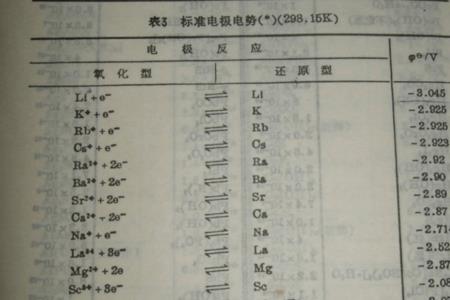 表3 标准电极电势(*)(298,15K)
电极反应 φ⊖/V
氧化型 还原型
Li⁺+e⁻ ⇌ Li -3.045
K⁺+e⁻ ⇌ K -2.925
Rb⁺+e⁻ ⇌ Rb -2.925
Cs⁺+e⁻ ⇌ Cs -2.923
Ra²⁺+2e⁻ ⇌ Ra -2.92
Ba²⁺+2e⁻ ⇌ Ba -2.90
Sr²⁺+2e⁻ ⇌ Sr -2.89
Ca²⁺+2e⁻ ⇌ Ca -2.87
Na⁺+e⁻ ⇌ Na -2.714
La³⁺+3e⁻ ⇌ La -2.52
Mg²⁺+2e ⇌ Mg -2.37
Sc³⁺+3e⁻ ⇌ Sc -2.08